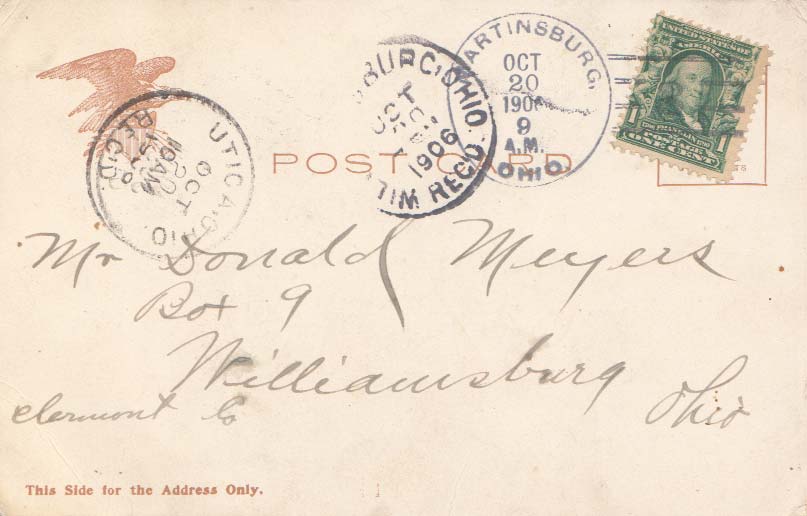 MARTINSBURG,
OCT
20
1906
9
A.M.
OHIO.
UNITED STATES OF AMERICA
1 1
POSTAGE
ONE CENT
BURG, OHIO.
OCT
1906
REC'D.
UTICA, OHIO.
OCT
20
10 AM
REC'D.
POST CARD
Mr Donald Meyers
Box 9
Williamsburg
Clermont Co Ohio
This Side for the Address Only.